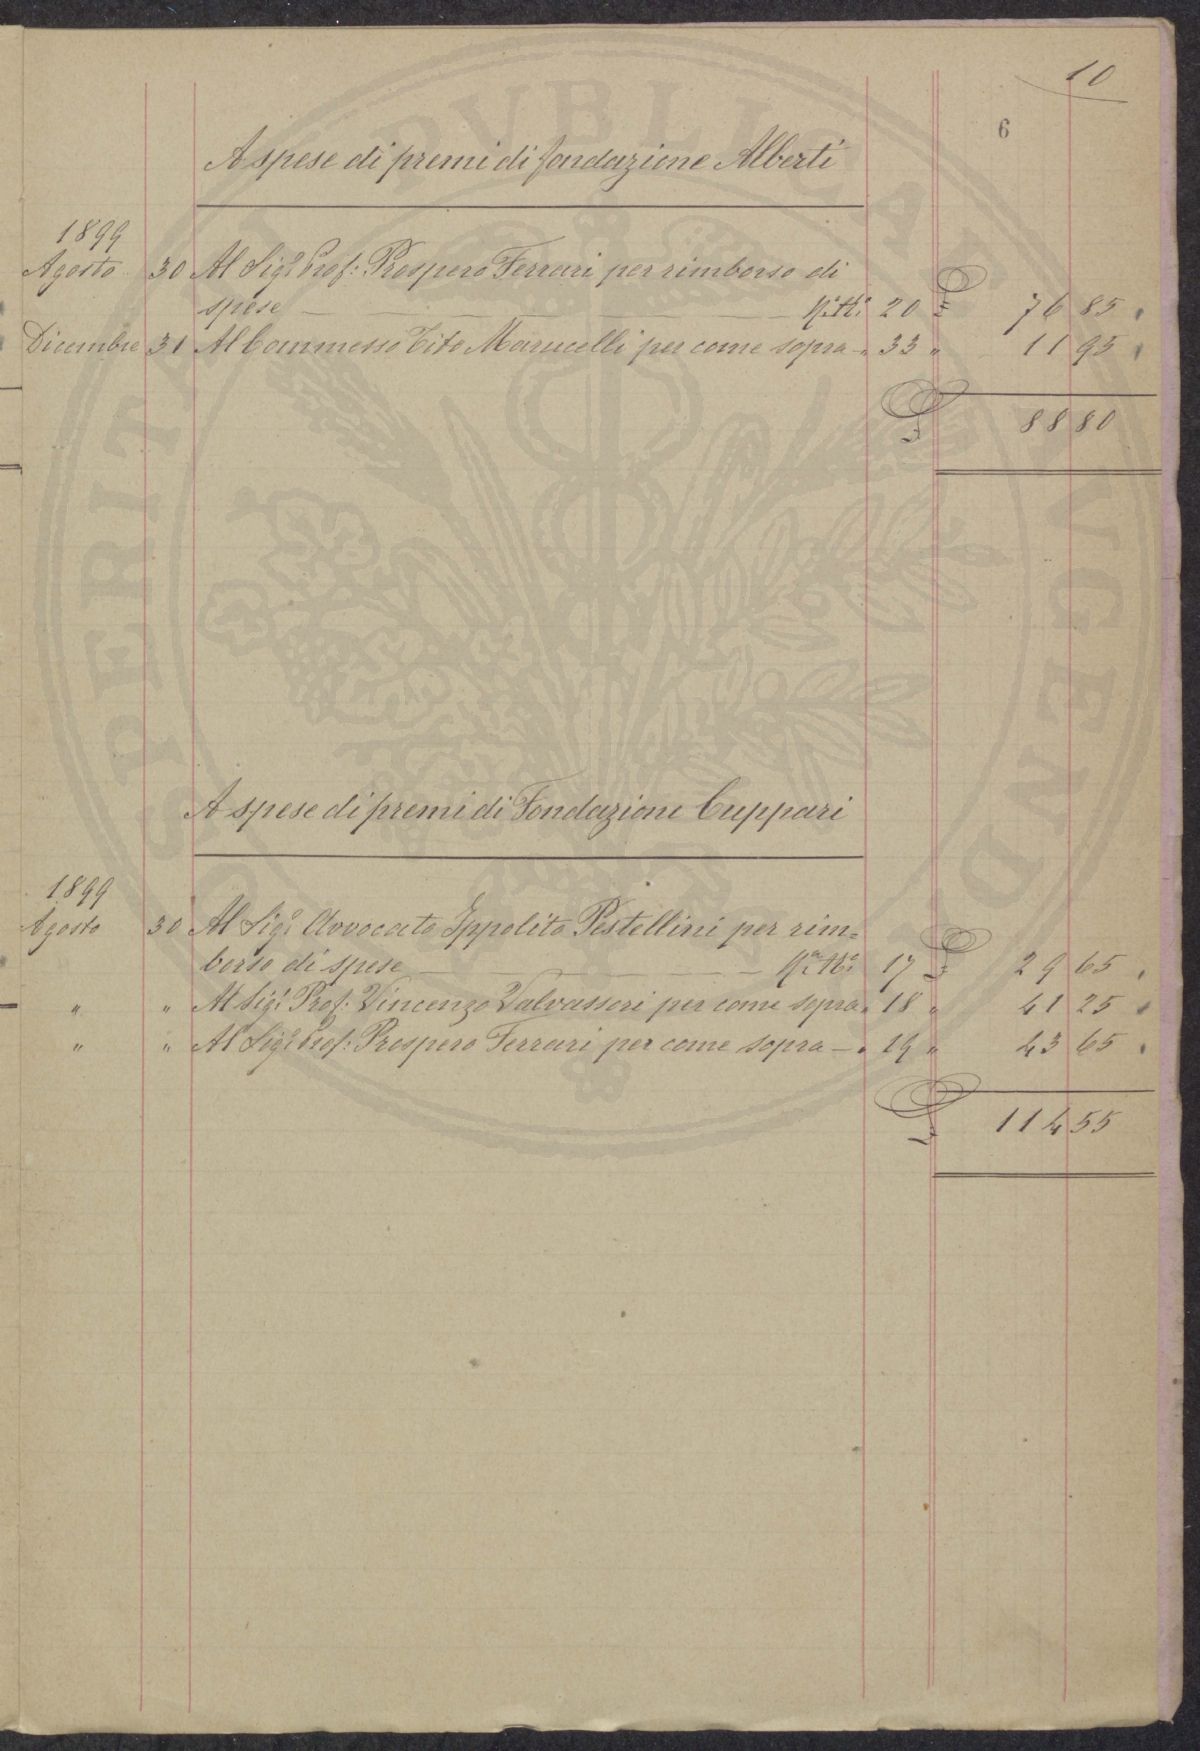 10
6
A spese di premi di fondazione Alberti
1899
Agosto 30 Al Sigr. Prof: Prospero Ferrari per rimborso di
spese 20 £ 76 85
Dicembre 31 Al Commesso Tito Marucelli per come sopra - " 33 " 11 95
£ 88 80
A spese di premi di Fondazione Cuppari
1899
Agosto 30 Al Sigr. Avvocato Ippolito Pestellini per rim=
borso di spese 17 £ 29 65
" " Al Sigr. Prof: Vincenzo Valvassori per come sopra " 18 " 41 25
" " Al Sigr. Prof: Prospero Ferrari per come sopra - " 19 " 43 65
£ 114 55